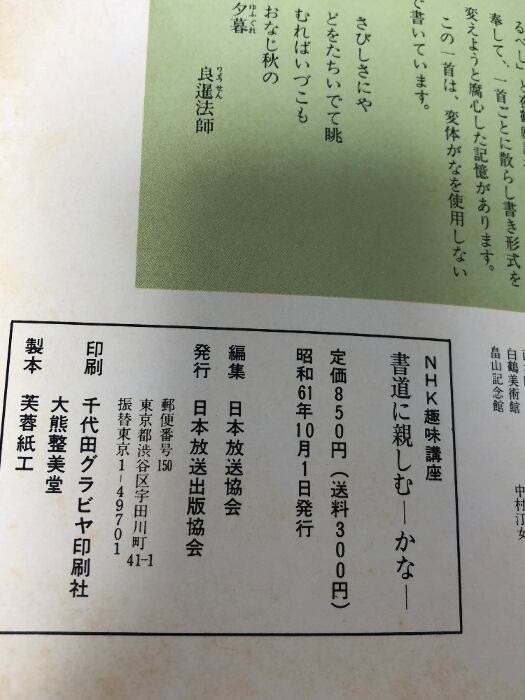 奉して、一首ごとに散らし書き形式を
変えようと腐心した記憶があります。
この一首は、変体がなを使用しない
で書いています。
さびしさにや
どをたちいでて眺
むればいづこも
おなじ秋の
夕暮
ゆふぐれ
良暹法師
りょうせん
白鶴美術館
畠山記念館
中村江女
NHK趣味講座
書道に親しむ―かな―
定価850円(送料300円)
昭和61年10月1日発行
編集 日本放送協会
発行 日本放送出版協会
郵便番号150
東京都渋谷区宇田川町41-1
振替東京1-49701
印刷 千代田グラビヤ印刷社
大熊整美堂
製本 芙蓉紙工